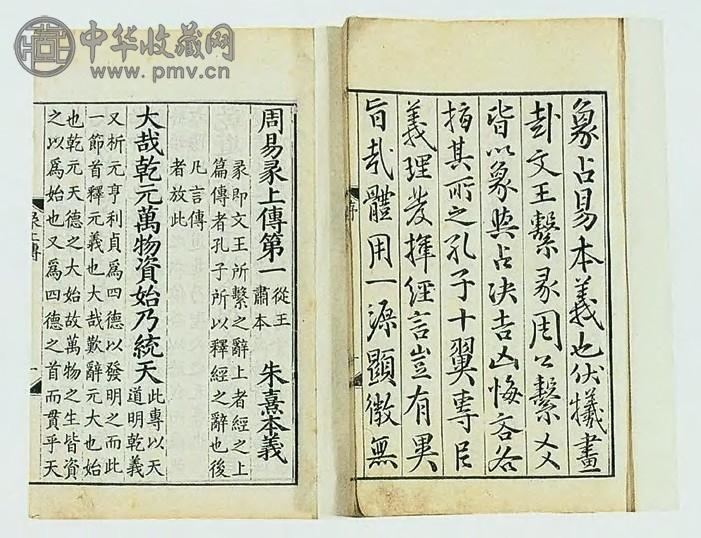 中华收藏网
www.pmv.cn
象占易本義也伏犧畫
卦文王繫彖周公繫爻
皆以象與占决吉凶悔吝各
指其所之孔子十翼專以
義理發揮經言豈有異
旨哉體用一源顯微無
序
周易彖上傳第一 從王肅本 朱熹本義
彖即文王所繫之辭上者經之上
篇傳者孔子所以釋經之辭也後
凡言傳
者放此
大哉乾元萬物資始乃統天 此專以天
道明乾義
又析元亨利貞爲四德以發明之而此
一節首釋元義也大哉歎辭元大也始
也乾元天德之大始故萬物之生皆資
之以爲始也又爲四德之首而貫乎天
彖上傳